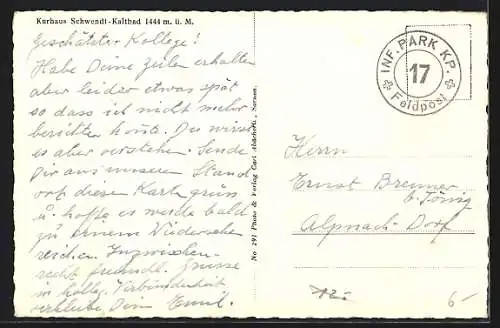 Kurhaus Schwendi-Kaltbad 1444 m. ü. M.
Geschätzter Kollege!
Habe Deine Zeilen erhalten
aber leider etwas spät
so dass ich nicht mehr
berichten konte. Du wirst
es aber verstehen. Sende
Dir aus unserem Stand
ort diese Karte
u. hoffe es werde bald
zu einem Wiedersehe
reichen. Inzwischen
recht freundl. Grüsse
in kolleg. Verbundenheit
verbleibe Dein Emil.
No 291 Photo & Verlag Carl Abächerli, Sarnen.
INF. PARK KP.
17
Feldpost
Herrn
Ernst Brenner
b.
Alpnach-Dorf
12.-
6.-